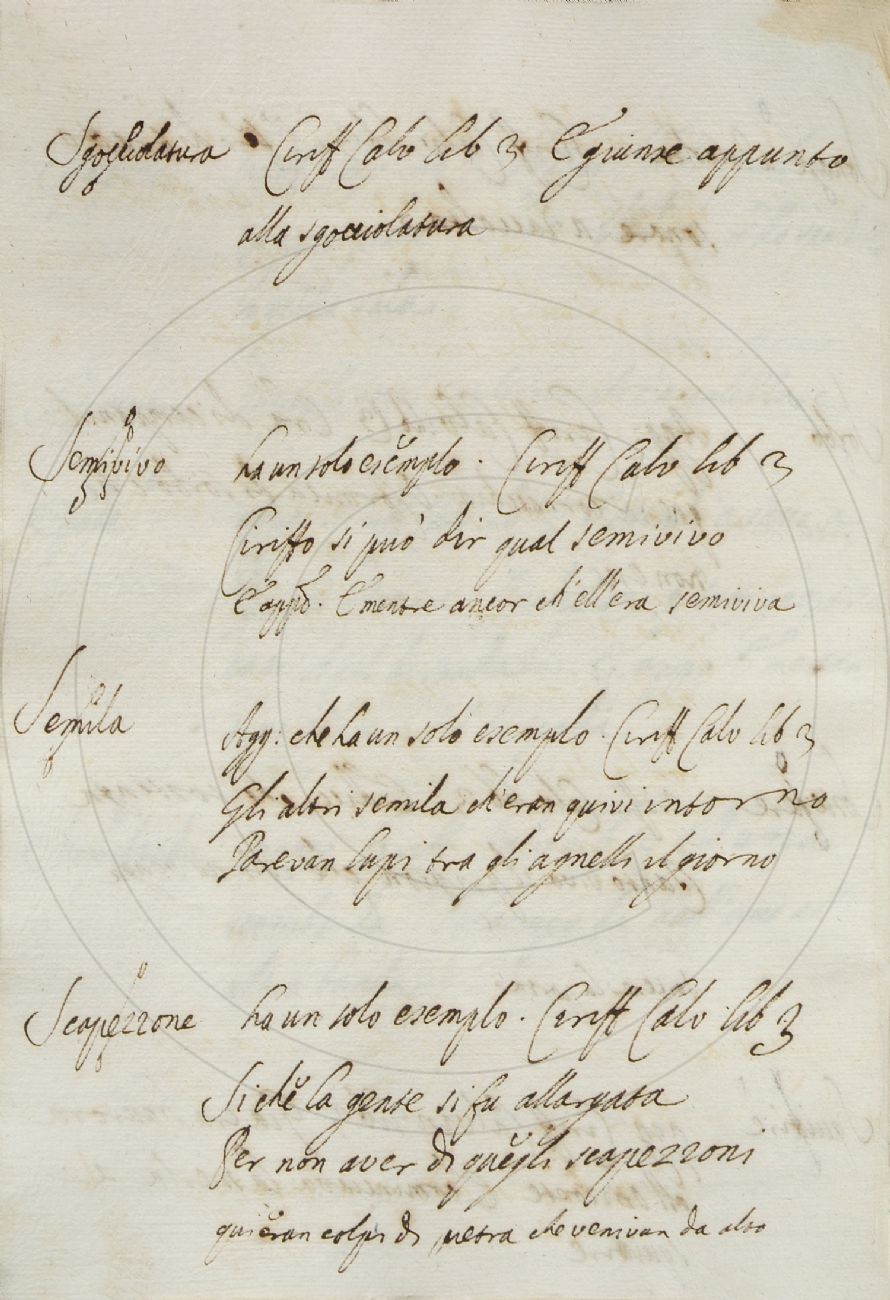 Sgocciolatura Ciriff Calv lib 3 E giunse appunto
alla sgocciolatura
Semivivo ha un solo esemplo. Ciriff Calv lib 3
Ciriffo si può dir qual semivivo
E app.o. E mentre ancor ch'ell'era semiviva
Semila Agg: che ha un solo esemplo. Ciriff Calv lib 3
Gli altri semila ch'eran quivi intorno
Parevan lupi tra gli agnelli il giorno
Scapezzone ha un solo esemplo. Ciriff Calv. lib 3
Sichè la gente si fu allargata
Per non aver di quegli scapezzoni
qui eran colpi di pietra che venivan da alto